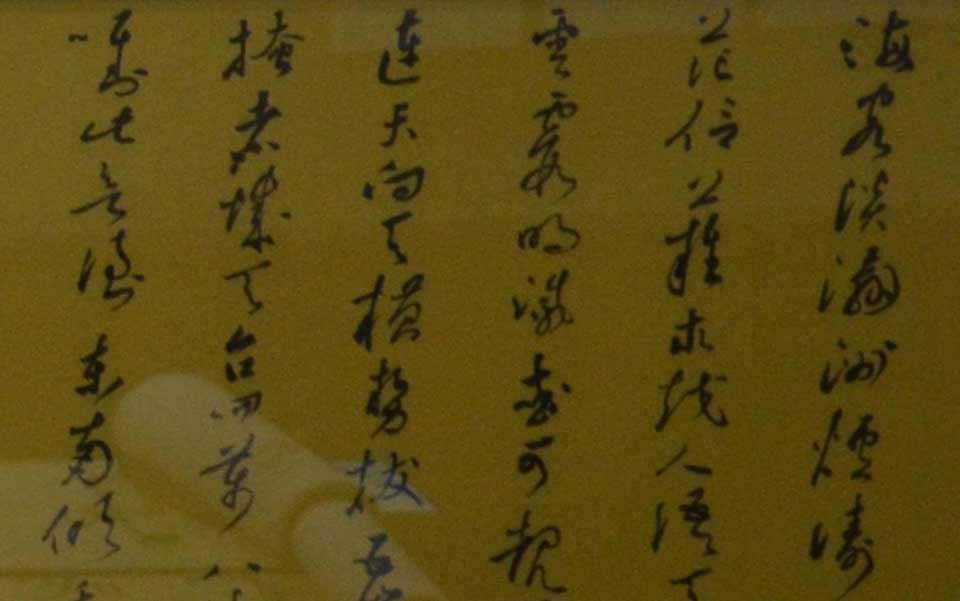 海客談瀛洲煙濤
茫信難求越人語天
雲霞明滅或可覩
連天向天橫勢拔五
掩赤城天台四萬八
對此欲倒東南傾